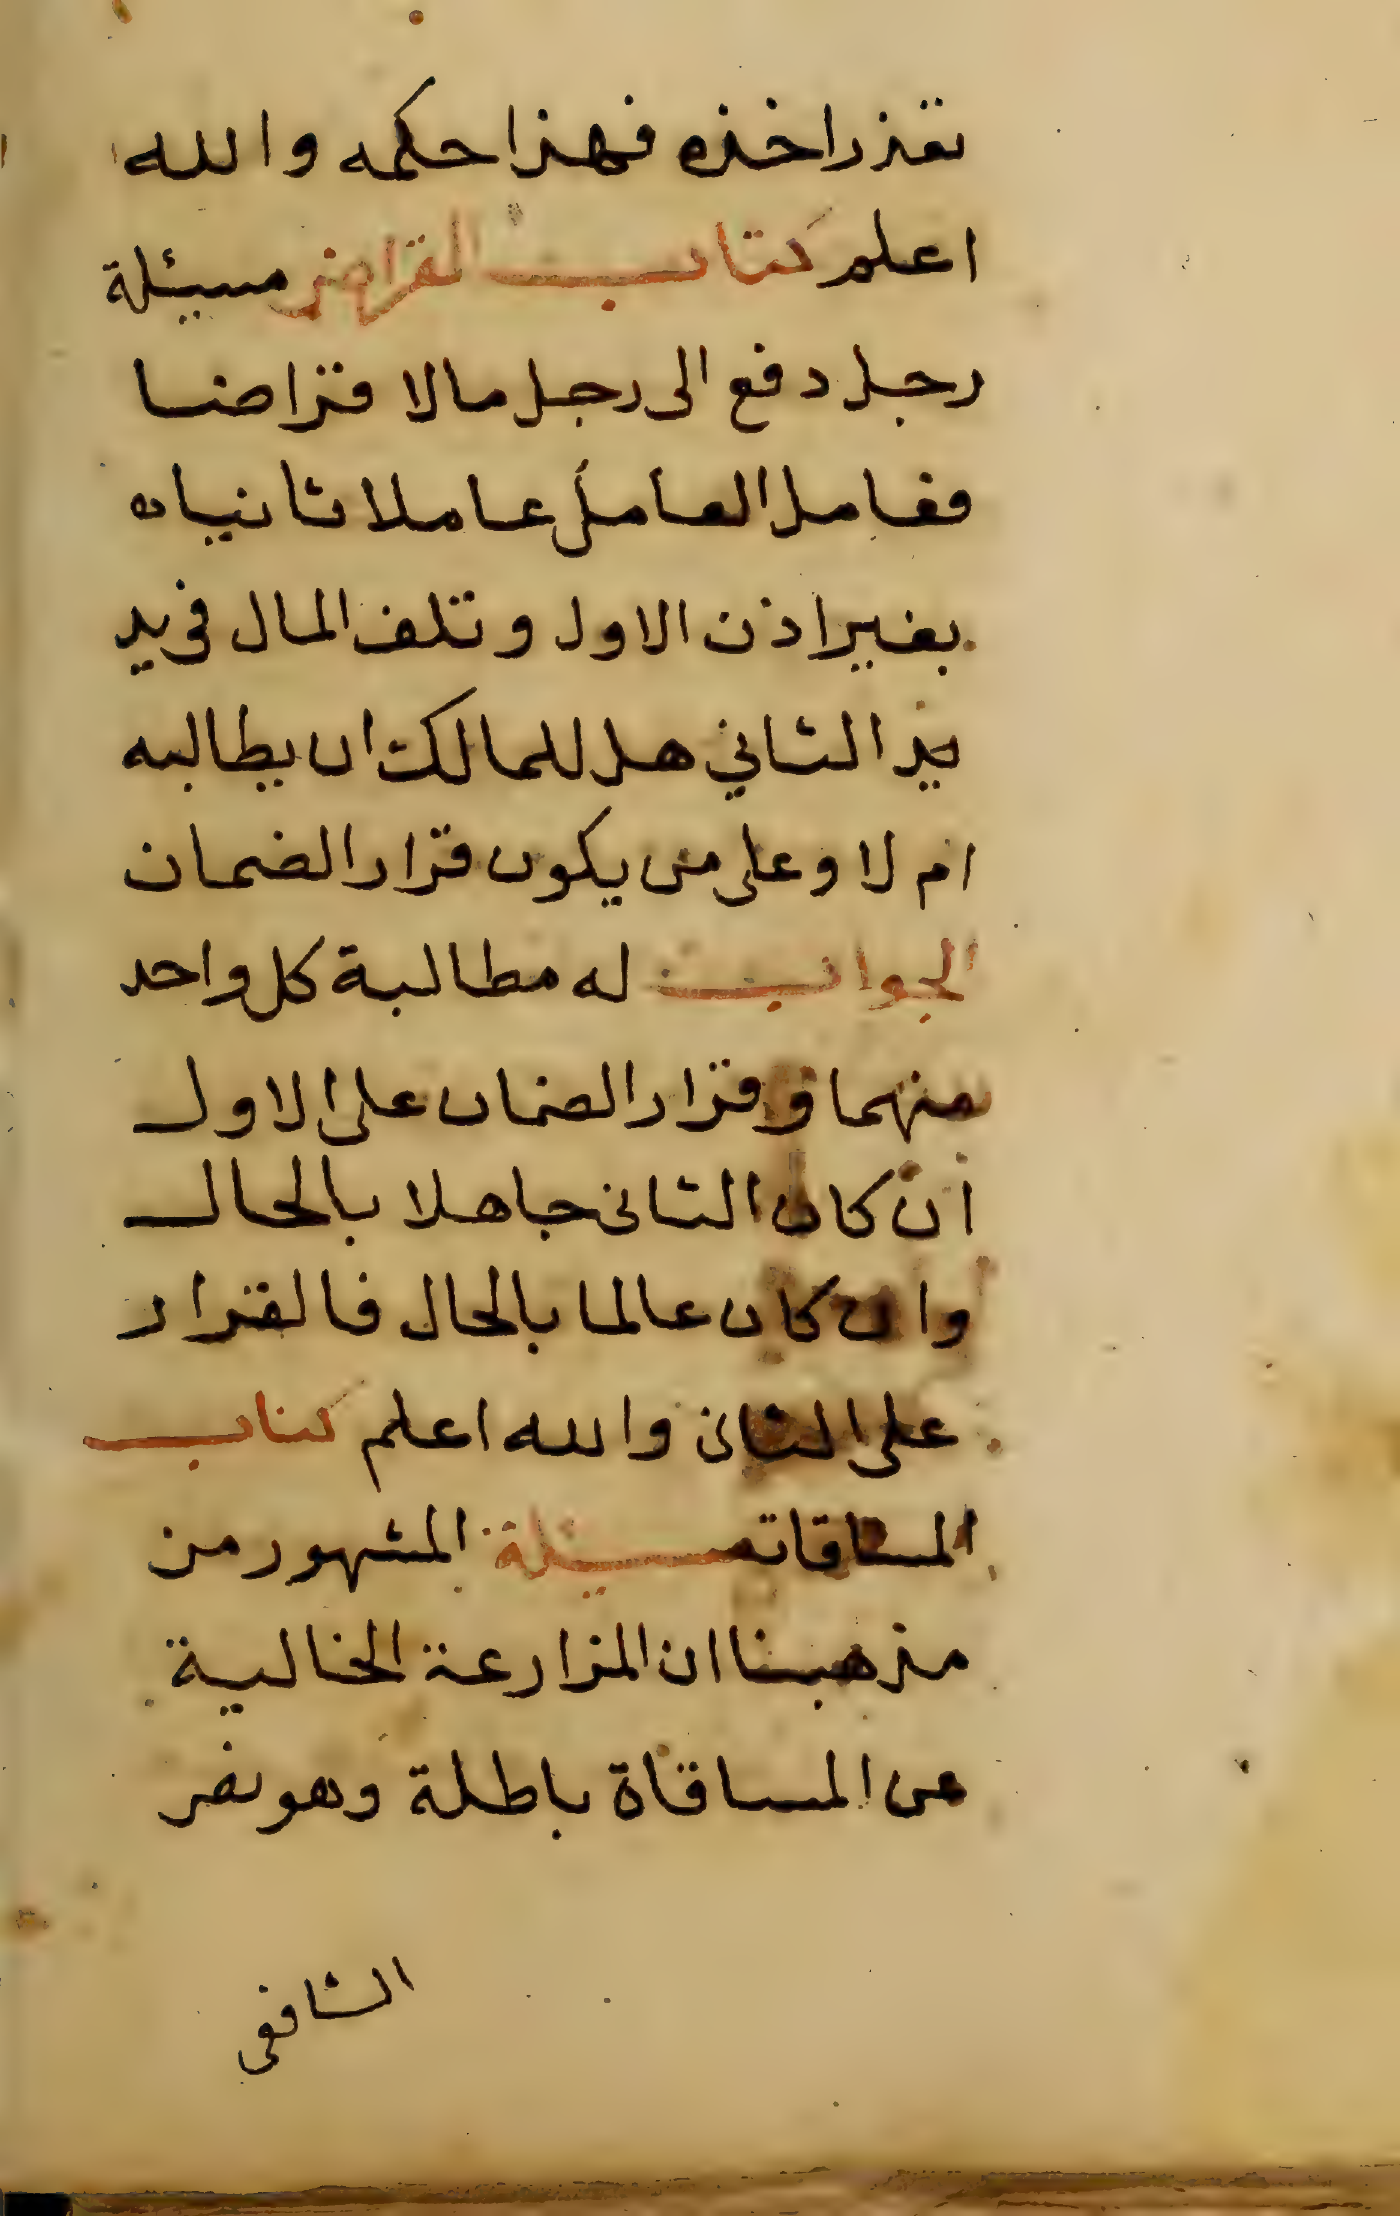 تعذر اخذه فهذا حكمه والله
اعلم كتاب القراض مسئلة
رجل دفع الى رجل مالا قراضا
فعامل العامل عاملا ثانيا
بغير اذن الاول وتلف المال في يد
يد الثاني هل للمالك ان يطالبه
ام لا وعلى من يكون قرار الضمان
الجواب له مطالبة كل واحد
منهما وقرار الضمان على الاول
ان كان الثانى جاهلا بالحال
وان كان عالما بالحال فالقرار
على الثانى والله اعلم كتاب
المساقاة مسئلة المشهور من
مذهبنا ان المزارعة الخالية
عن المساقاة باطلة وهو نص
الشافعى